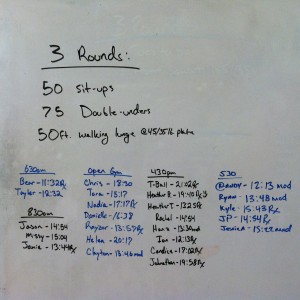 3 Rounds:
50 Sit-ups
75 Double-unders
50ft. walking lunge @45/35lb plate
630am
Bear - 11:32Rx
Taylor - 12:32
830am
Jason - 14:54
Missy - 15:04
Jamie - 13:44Rx
Open Gym
Chris - 18:30
Tara - 15:17
Nadia - 17:17Rx
Danielle - 16:38
13:57Rx
Helen - 20:17
Clayton - 13:48 mod
430pm
T-Bell - 21:02Rx
Heather B
Heather T - 13:25Rx
Rachel - 14:54
Hans - 13:30 mod
Ian - 12:13Rx
Candice - 17:02Rx
Johnathan - 19:58Rx
530
12:13 mod
Ryan - 13:48 mod
Kyle - 15:43Rx
JP - 14:54Rx
Jenica - 15:22 mod